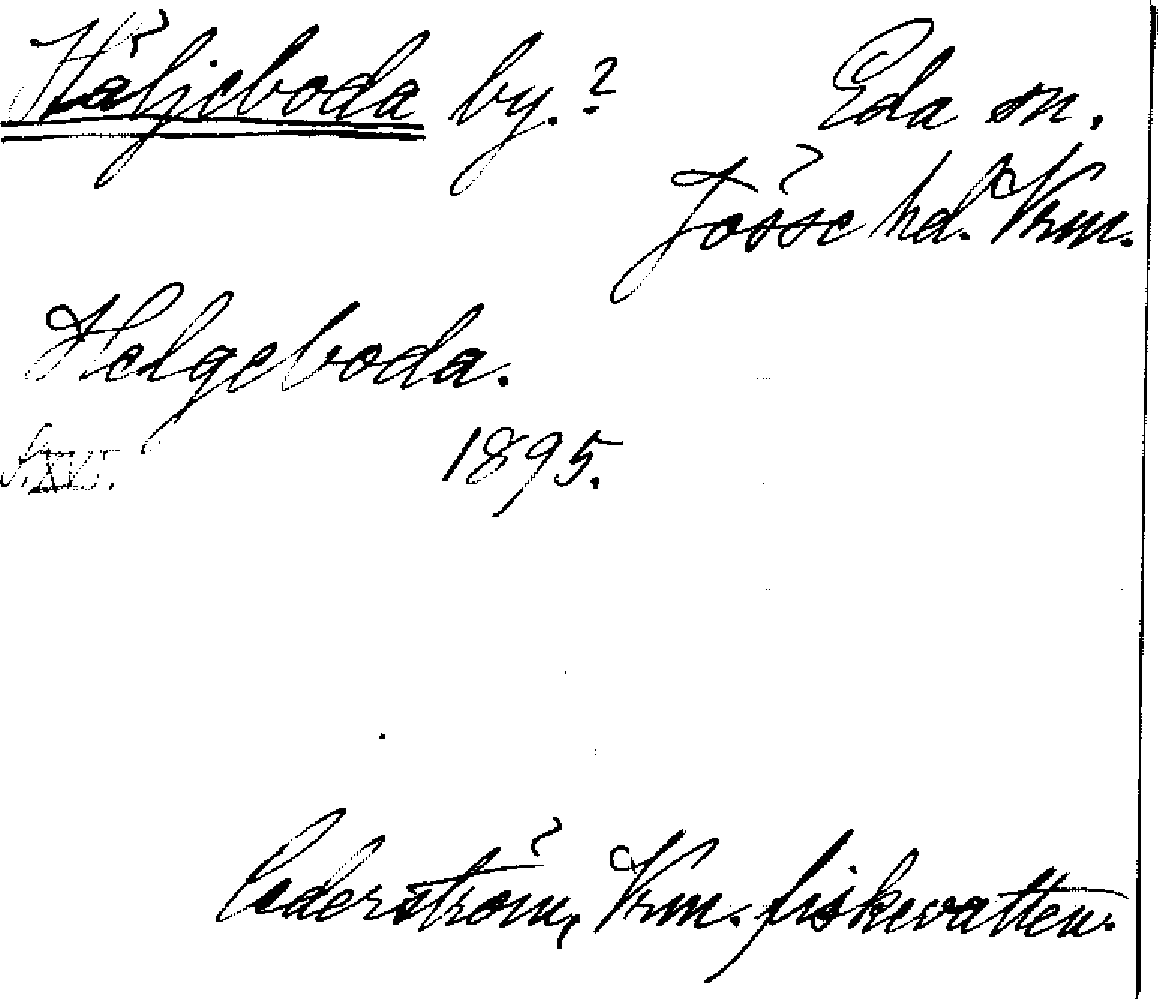 Häljeboda by.? Eda sn.
Jösse hd. Vrm.
Helgeboda.
1895.
Cederström, Vrm. fiskevatten.